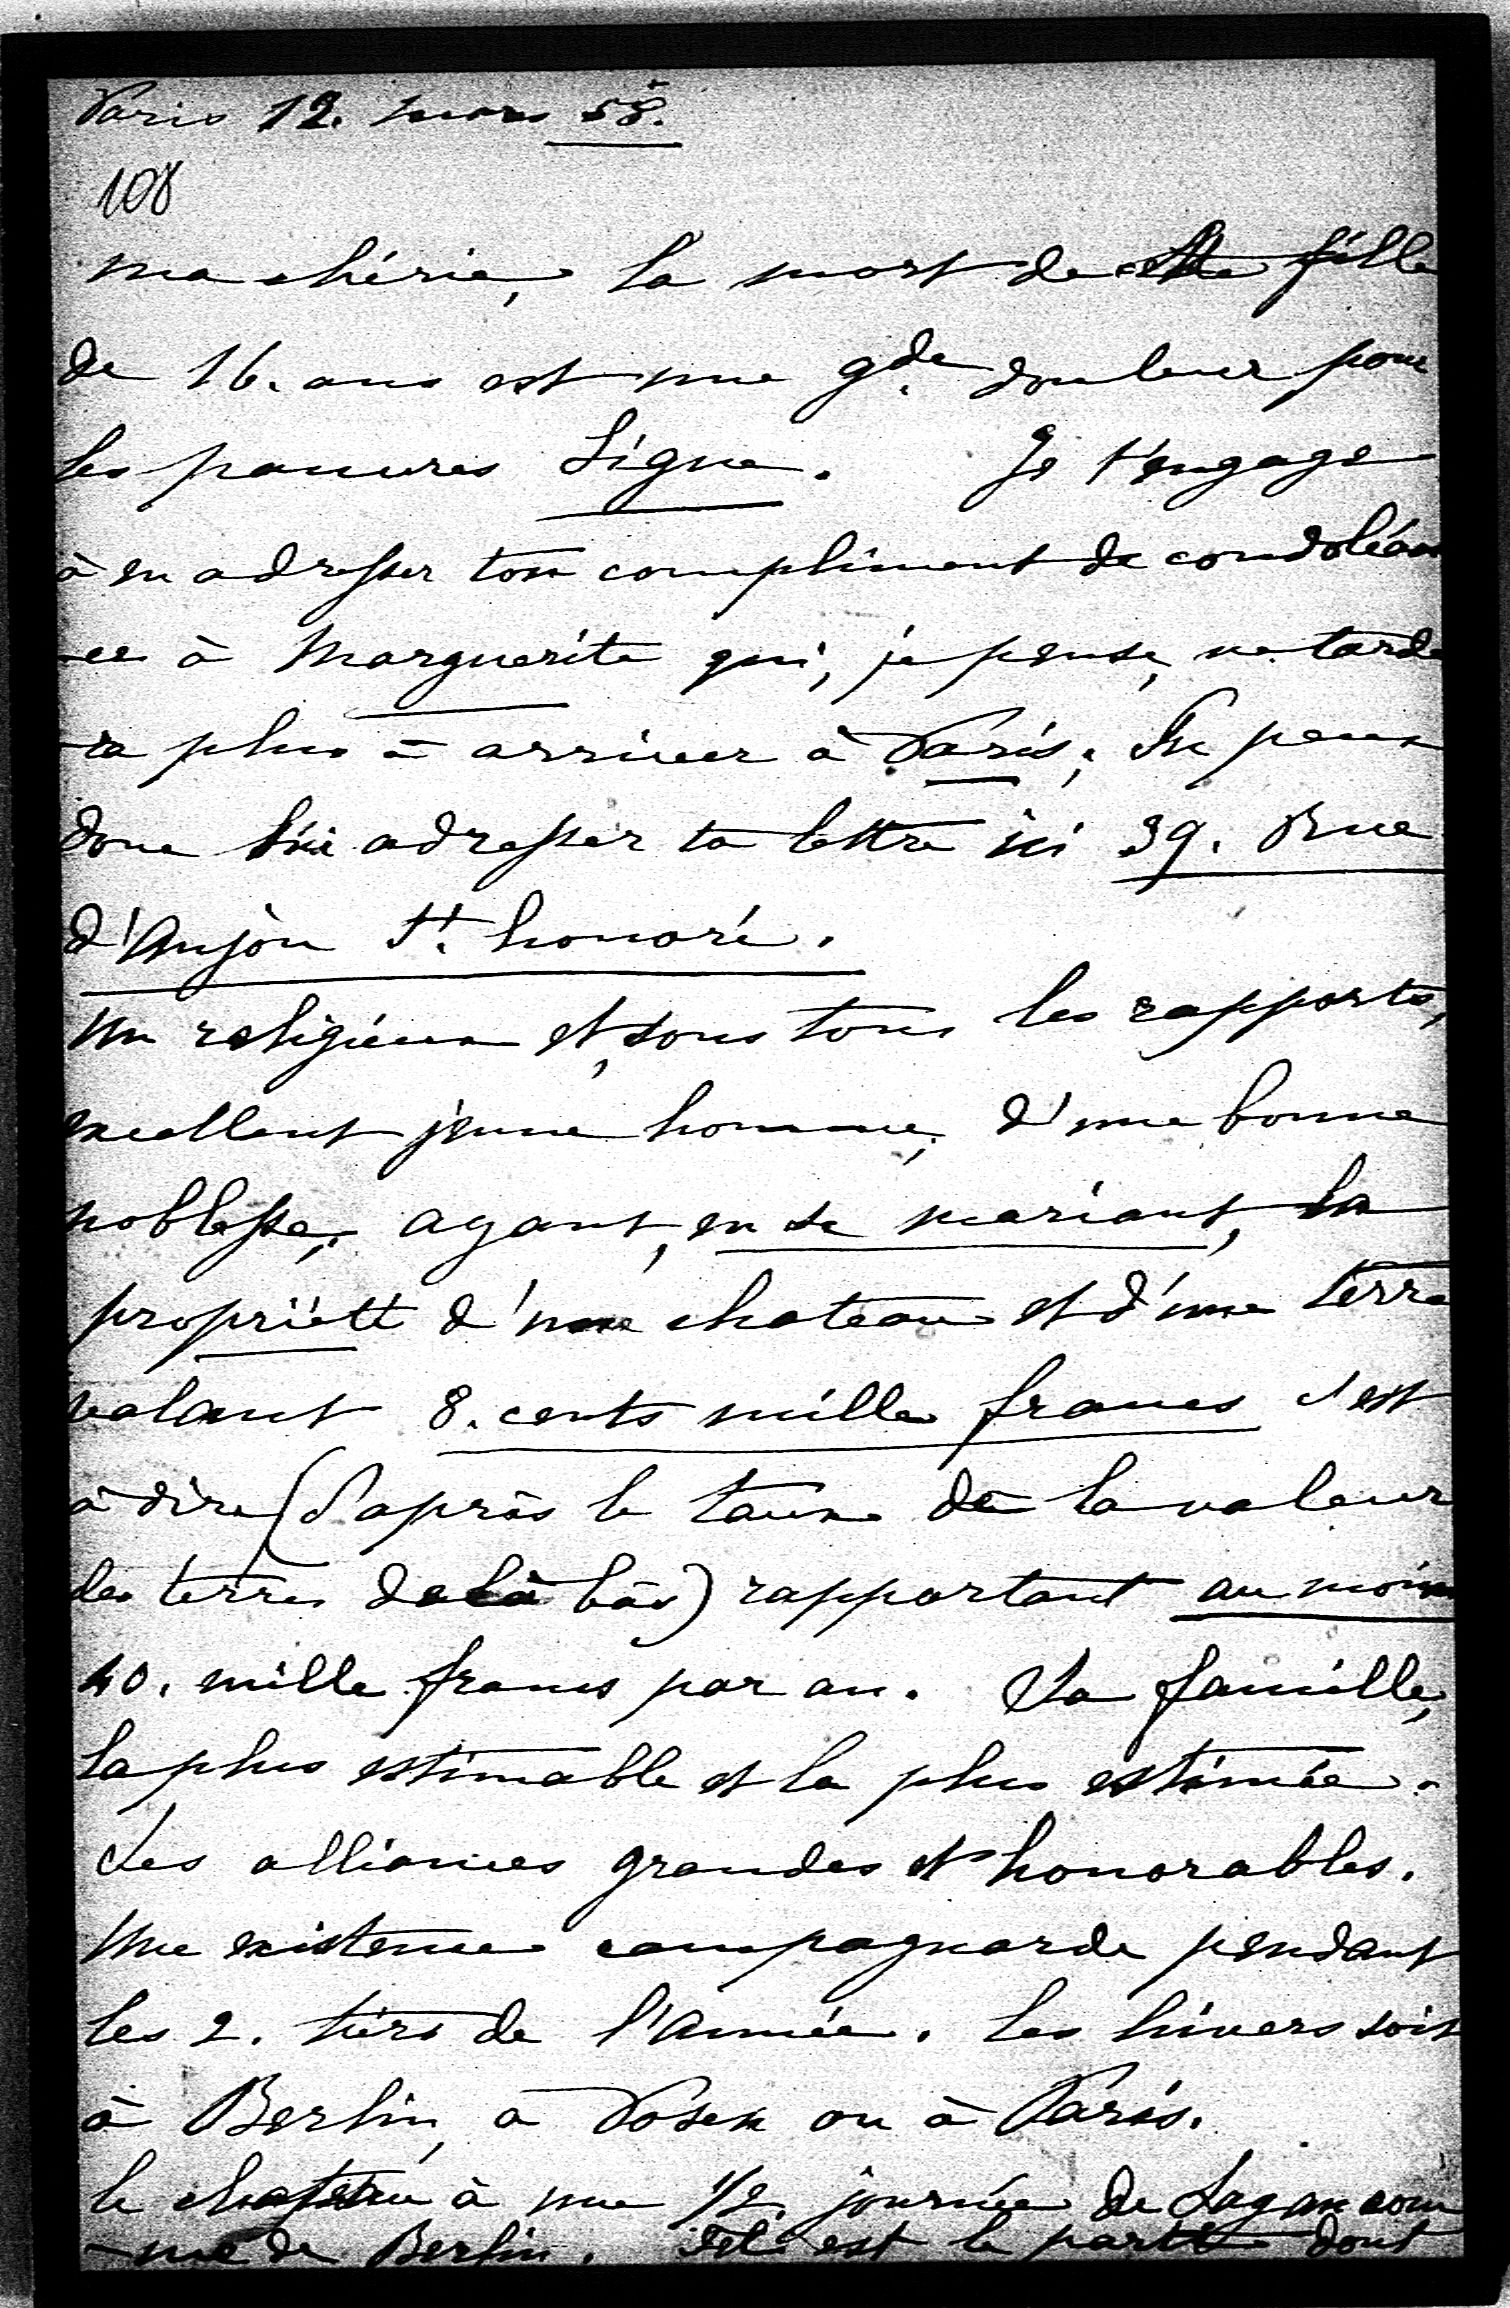 Paris 12. mars 58.
108
ma chérie, la mort de cette fille
de 16. ans est une gde. douleur pour
les pauvres Ligne. Je t'engage
à en adresser ton compliment de condoléan
-ce à Marguerite qui, je pense, ne tarde
-ra plus à arriver à Paris; Tu peux
donc lui adresser ta lettre ici 39. Rue
d'Anjou St. honoré.
Un religieux et, sous tous les rapports,
excellent jeune homme, d'une bonne
noblesse, ayant, en se mariant, la
propriété d'un chateau et d'une terre
valant 8. cents mille francs c'est
à dire (d'après le taux de la valeur
des terres de là bas) rapportant au moins
40. mille francs par an. Sa famille,
la plus estimable et la plus estimée.
Les alliances grandes et honorables.
Une existence campagnarde pendant
les 2. tiers de l'année. les hivers soit
à Berlin, à Posen ou à Paris.
le chateau à une 1/2 journée de Sagan com
-me de Berlin. Tel est le parti dont